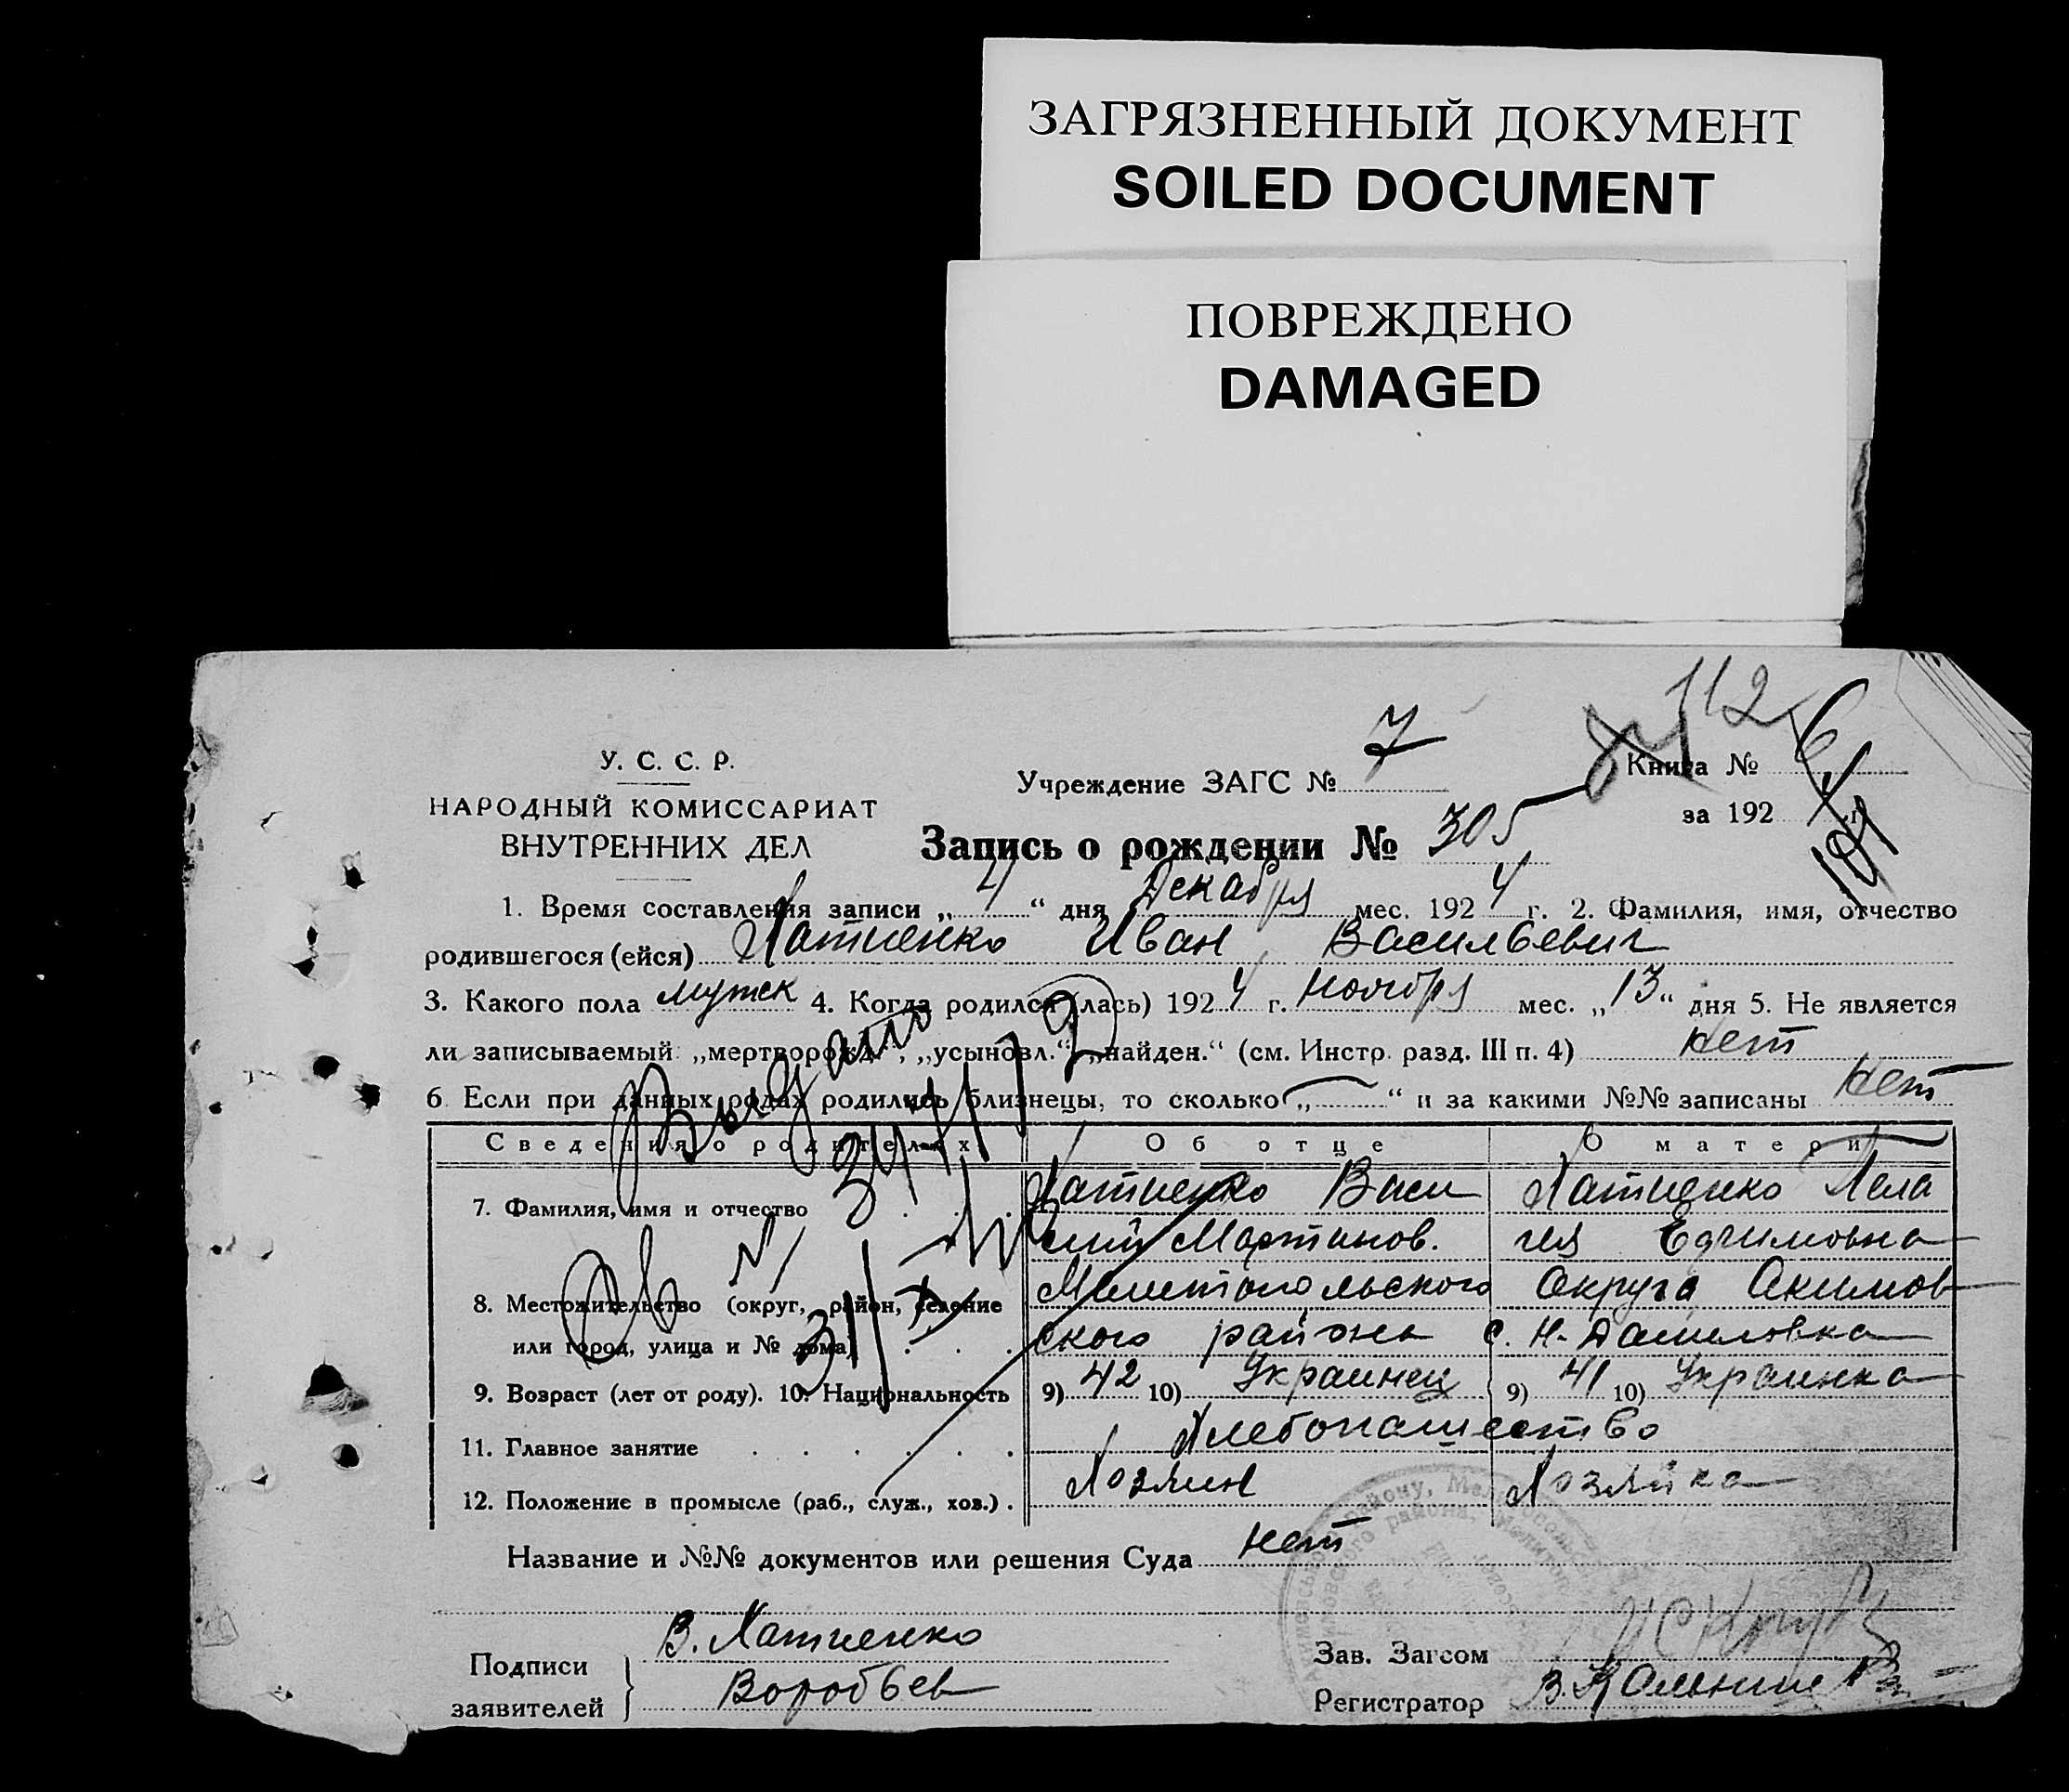 ЗАГРЯЗНЕННЫЙ ДОКУМЕНТ
SOILED DOCUMENT
ПОВРЕЖДЕНО
DAMAGED
112
У. С. С. Р.
НАРОДНЫЙ КОМИССАРИАТ
ВНУТРЕННИХ ДЕЛ
Учреждение ЗАГС № 7
Книга № 6
за 192 4 г.
Запись о рождении № 305
1. Время составления записи „ 4 “ дня Декабря мес. 192 4 г. 2. Фамилия, имя, отчество
родившегося (ейся) Хатненко Иван Васильевич
3. Какого пола мужск 4. Когда родился (лась) 192 4 г. Ноября мес. „ 13 “ дня 5. Не является
ли записываемый „мертворожд.“, „усыновл.“, „найден.“ (см. Инстр. разд. III п. 4) нет
6. Если при данных родах родились близнецы, то сколько „ — “ и за какими №№ записаны нет
Выдано
Сведения о родителях Об отце О матери
7. Фамилия, имя и отчество Хатненко Васи Хатненко Пела
лий Мартинов. гея Ефимовна
8. Местожительство (округ, район, селение Мелитопольского Округа Акимов
или город, улица и № дома) ского района с. Н-Даниловка
9. Возраст (лет от роду). 10. Национальность 9) 42 10) Украинец 9) 41 10) Украинка
11. Главное занятие Хлебопашество
12. Положение в промысле (раб., служ., хоз.) Хозяин Хозяйка
Название и №№ документов или решения Суда нет
Подписи заявителей
В. Хатненко
Воробьев
Зав. Загсом
Регистратор